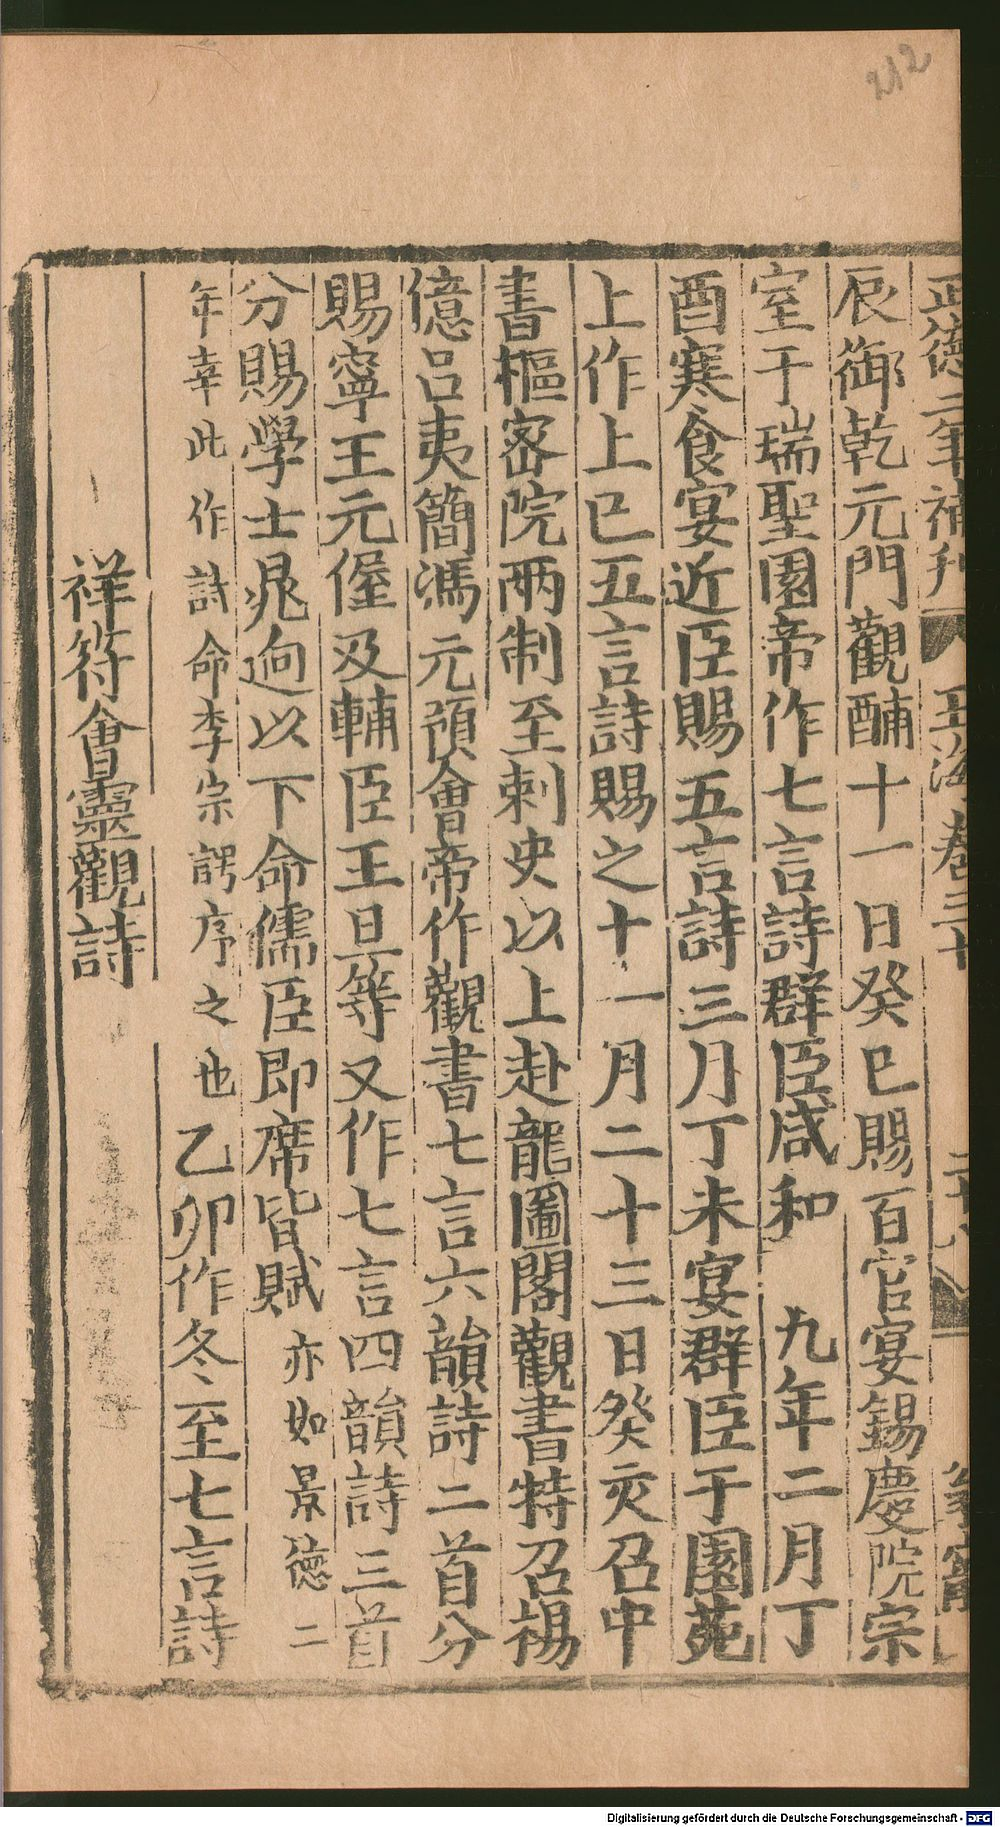 212
正德二年補刊 玉海卷三十 二十八
辰御乾元門觀酺十一日癸巳賜百官宴錫慶院宗
室于瑞聖園帝作七言詩群臣咸和 九年二月丁
酉寒食宴近臣賜五言詩三月丁未宴群臣于園苑
上作上巳五言詩賜之十一月二十三日癸亥召中
書樞密院兩制至刺史以上赴龍圖閣觀書特召楊
億呂夷簡馮元預會帝作觀書七言六韻詩二首分
賜寧王元偓及輔臣王旦等又作七言四韻詩三首
分賜學士晁迥以下命儒臣即席皆賦亦如景德二
年幸此作詩命李宗諤序之也乙卯作冬至七言詩
祥符會靈觀詩
Digitalisierung gefördert durch die Deutsche Forschungsgemeinschaft - DFG